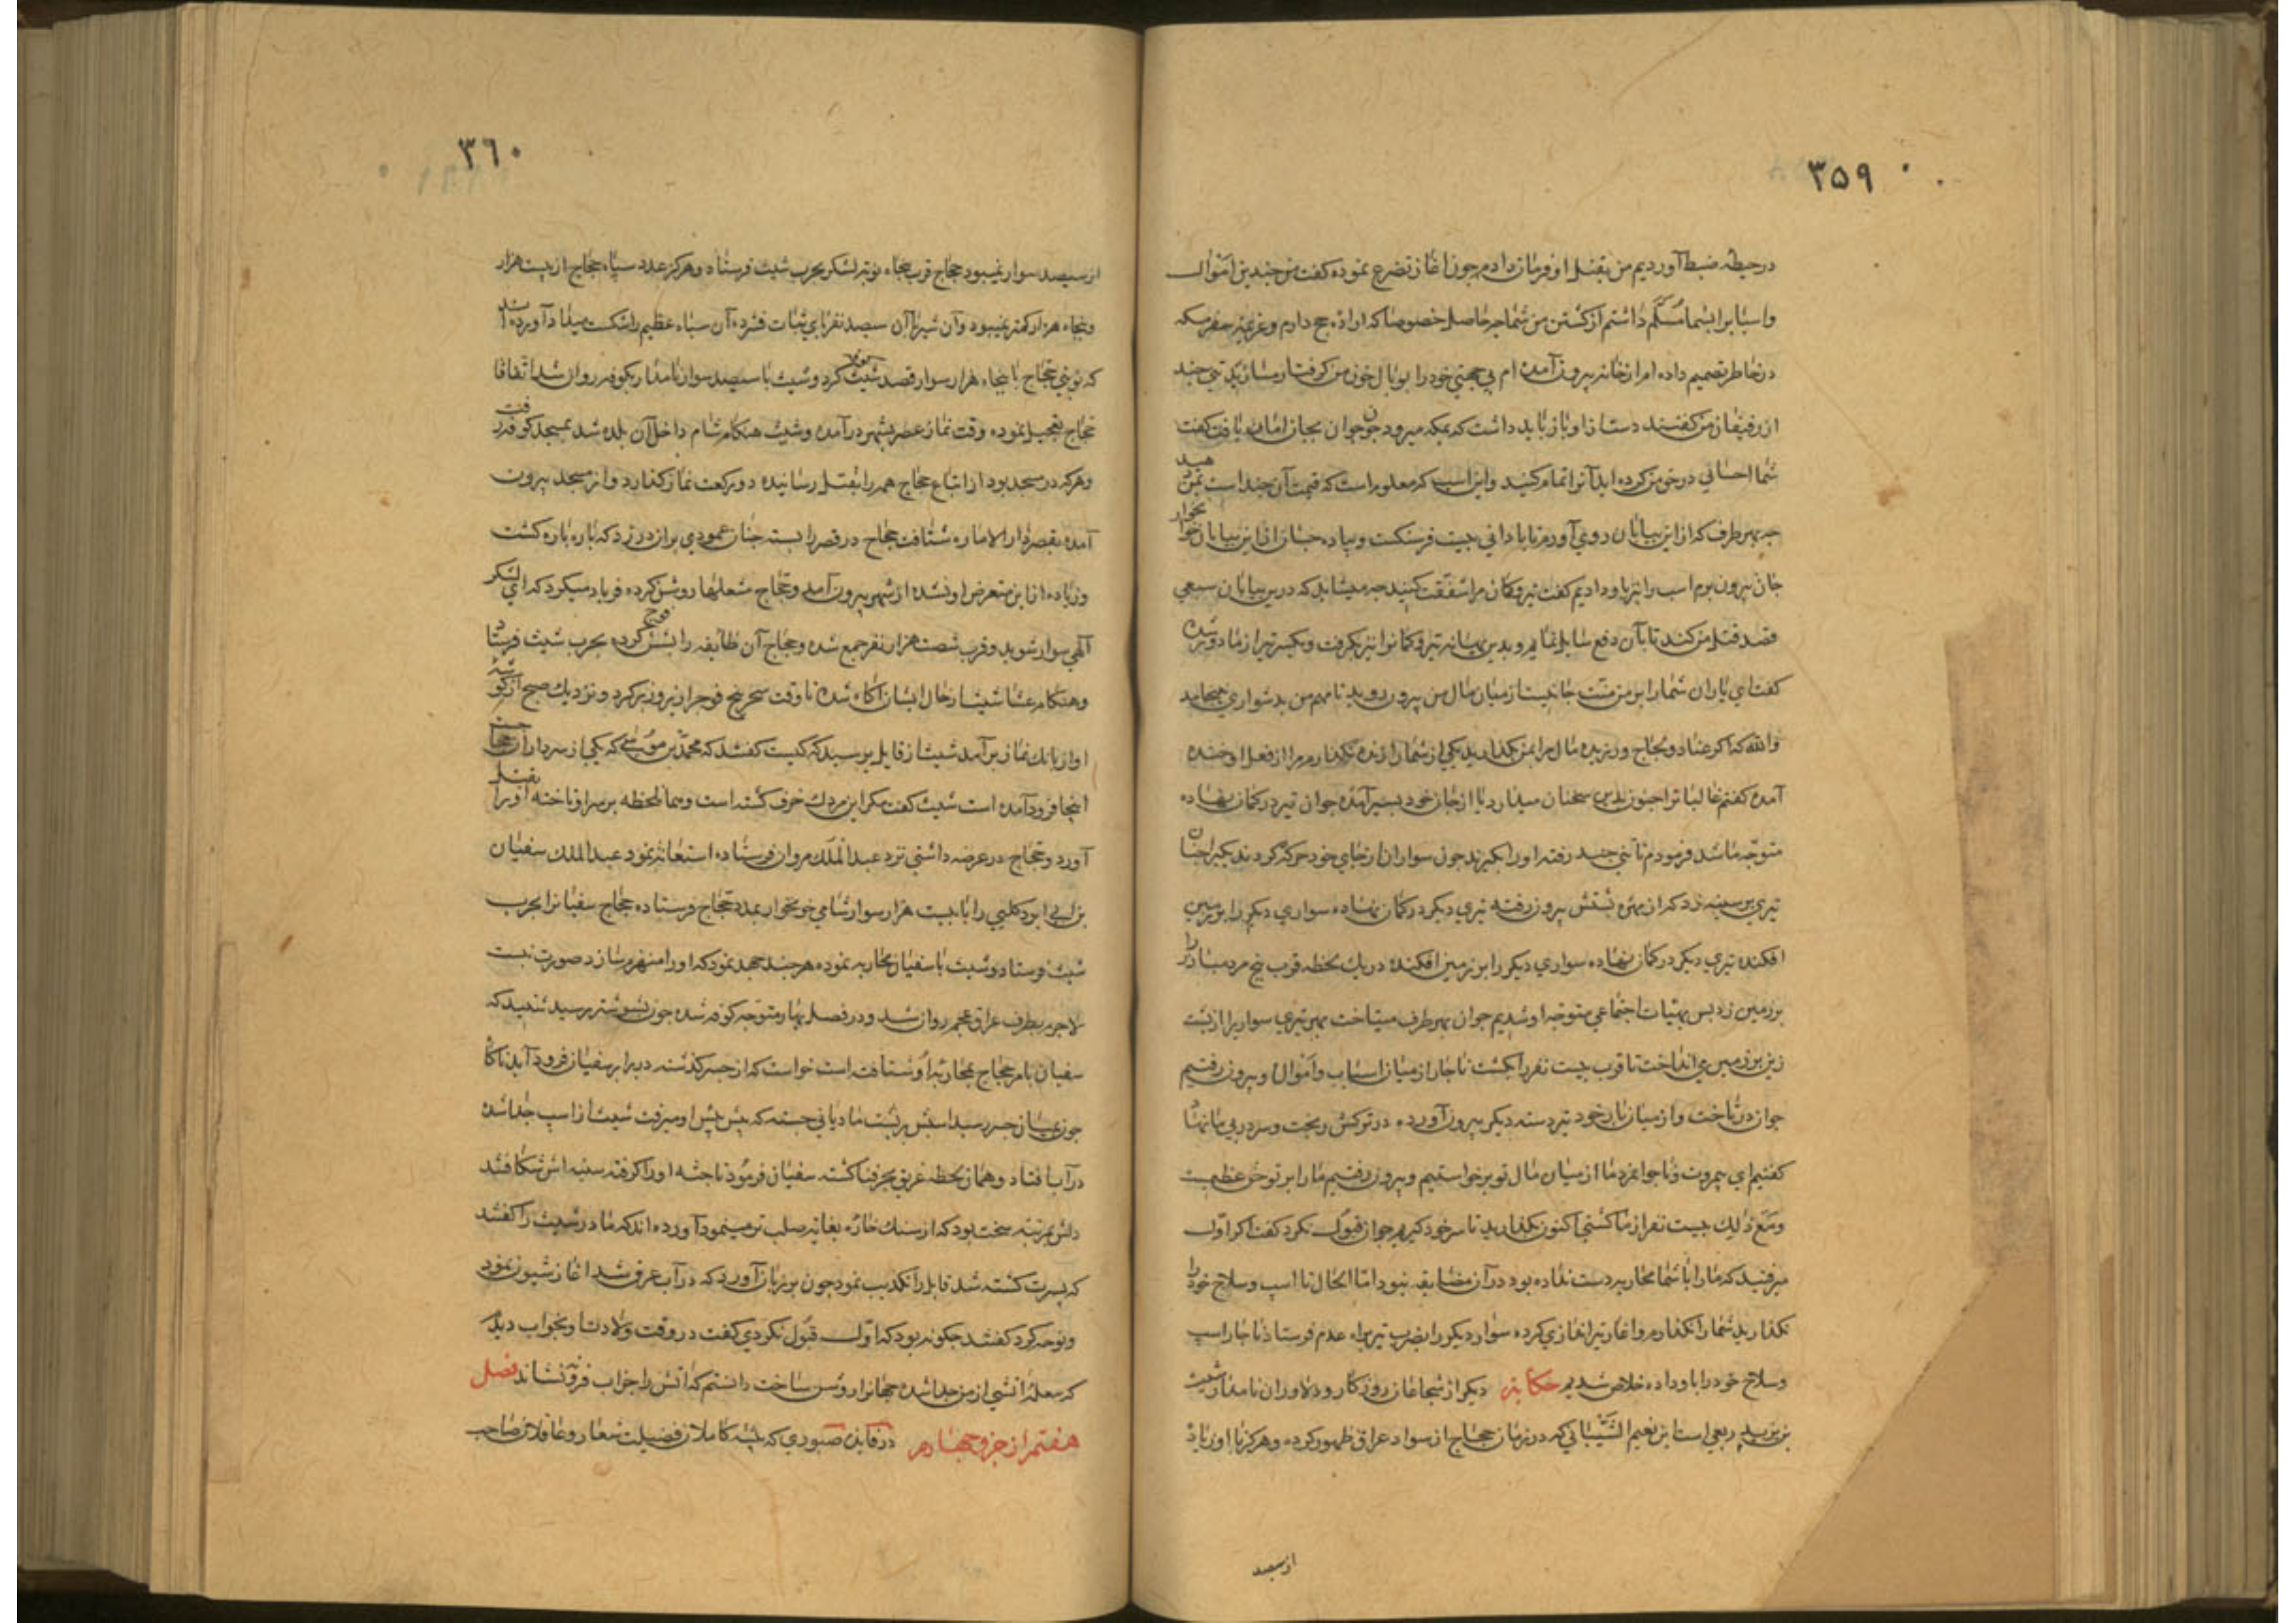 ٣٥٩
در حیطه ضبط آوردیم من بقتل او فرمان دادم چون اغاز تضرع نموده گفت من چندین اموال
و اسباب را بشما مسلم داشتم از کشتن من شما چه حاصل خصوصا که اراده حج دارم و عزیمت سفر مکه
در خاطر تصمیم داده ام از خانه بیرون آمده ام بی حجتی خود را بوبال خون من گرفتار مسازید تنی چند
از رفیقان من گفتند دست از او باز باید داشت که بمکه میرود چون جوان بجان امان یافت گفت
شما احسانی در حق من کرده اید آنرا تمام کنید و این اسب که معلوم است که قیمت آن چند است بمن دهید
چه بهر طرف که از این بیابان روی آورم تا بادانی بیست فرسنگست و پیاده چسان از این بیابان خونخوار
جان بیرون برم اسب را نیز باو دادیم گفت تیر و کمان مرا شفقت کنید چه میشاید که درین بیابان سبعی
قصد قتل من کند تا بآن دفع سایل نمایم و بدین بهانه تیر و کمانرا نیز بگرفت و یکسر تیر از ما دورتر شده
گفت ای یاران شما را بر من منت جانیست از میان مال من بیرون روید تا مهم من بدشواری نینجامد
والله که اگر عناد و لجاج ورزیده مال مرا بمن نگذارید یکی از شما را زنده نگذارم مرا از فعل او خنده
آمده گفتم غالبا ترا جنون بدین سخنان میدارد یا از جان خود بسیر آمده جوان تیر در کمان نهاده
متوجه ما شد فرمودم تا تنی چند رفته او را بگیرند چون سواران از جای خود حرکت کردند یکی را چنان
تیری بر سینه زد که از مهره پشتش بیرون رفته تیری دیگر در کمان نهاده سواری دیگر را بر زمین
افکنده تیری دیگر در کمان نهاده سواری دیگر را بر زمین افکنده در یک لحظه قرب پنج مرد مبارز را
بر زمین زد پس بهیات اجتماعی متوجه او شدیم جوان بهر طرف میتاخت بهر تیری سواریرا از پشت
زین بر زمین می انداخت تا قرب بیست نفر را بکشت ناچار از میان اسباب و اموال او بیرون رفتیم
جوان در تاخت و از میان بار خود تیر دسته دیگر بیرون آورده در ترکش ریخت و سر در پی ما نهاد
گفتیم ای بیمروت و ناجوانمرد ما از میان مال تو برخواستیم و بیرون رفتیم ما را بر تو حق عظیمست
و مع ذلک بیست نفر از ما کشتی اکنون بگذارید تا سر خود گیریم جوان قبول نکرد گفت اگر اول
میرفتید که ما را با شما محاربه دست نداده بود در آن مضایقه نبود اما الحال تا اسب و سلاح خود را
نگذارید شما را نگذارم و اغاز تیر اندازی کرده سوار دیگر را بضرب تیر براه عدم فرستاد ناچار اسب
و سلاح خود را باو داده خلاص شدیم حکایت دیگر از شجاعان روزگار و دلاوران نامدار شبیث
بن یزید ربعی است ابن نعیم الشیبانی که در زمان حجاج از سواد عراق ظهور کرده و هرگز با او زیاده
از سیصد
٣٦٠
از سیصد سوار نمیبود حجاج قرب پنجاه نوبت لشکر بحرب شیث فرستاد و هرگز عدد سپاه حجاج از بیست هزار
و پنجاه هزار کمتر نمیبود و آن شیر با آن سیصد نفر پای ثبات فشرده آن سپاه عظیم را شکست میداد آورده اند
که نوبتی حجاج با پنجاه هزار سوار قصد شیث کرد و شیث با سیصد سوار نامدار بکوفه روان شد اتفاقا
حجاج تعجیل نموده وقت نماز عصر بشهر درآمده و شیث هنگام شام داخل آن بلده شد بمسجد کوفه در رفت
و هرکه در مسجد بود از اتباع حجاج همه را بقتل رسانیده دو رکعت نماز گذارد و از مسجد بیرون
آمده بقصر دار الاماره شتافت حجاج در قصر را بسته چنان عمودی بران در زد که پاره پاره گشت
و زیاده از این متعرض او نشده از شهر بیرون آمد و حجاج مشعلها روشن کرده فریاد میکرد که ای لشکر
آلهی سوار شوید و قرب شصت هزار نفر جمع شده و حجاج آن طایفه را بشش فوج کرده بحرب شیث فرستاد
و هنگام عشا شیث از حال ایشان آگاه شده تا وقت سحر پنج فوج را زیر و زبر کرد و نزدیک صبح از گوشه
اواز بانک نماز برآمد شیث از قایل پرسید که کیست گفتند که محمد بن موسی که یکی از سرداران حجاجست
اینجا فرود آمده است شیث گفت مگر این مردک خرف گشته است و همان لحظه بر سر او تاخته او را بقتل
آورد و حجاج در عرضه داشتی نزد عبد الملک مروان فرستاده استعانت نمود عبد الملک سفیان
بن ابی ابرد کلبی را با بیست هزار سوار شامی خونخوار بمدد حجاج فرستاده حجاج سفیانرا بحرب
شیث فرستاد و شیث با سفیان محاربه نموده هرچند جهد نمود که او را منهزم سازد صورت نبست
لاجرم بطرف عراق عجم روان شد و در فصل بهار متوجه کوفه شده چون بشوشتر رسید شنید که
سفیان بامر حجاج بمحاربه او شتافته است خواست که از جسر گذشته در برابر سفیان فرود آید ناگاه
چون بمیان جسر رسید اسبش بر پشت مادیانی جسته که پیش پیش او میرفت شیث از اسب جدا شده
در آب افتاد و همان لحظه غریق بحر فنا گشته سفیان فرمود تا جثه او را گرفته سینه اش شکافتند
دلش بمرتبه سخت بود که از سنک خاره بغایت صلب تر مینمود آورده اند که مادر شیث را گفتند
که پسرت کشته شد قایل را تکذیب نمود چون بر زبان آورد که در آب غرق شد اغاز شیون نمود
و نوحه کرد گفتند چگونه بود که اول قبول نکردی گفت در وقت ولادت او بخواب دیدم
که شعله آتشی از من جدا شده جهانرا روشن ساخت دانستم که آتش را جز آب فرو ننشاند فصل
هفتم از جزو چهارم در فایده صبوری که پیشه کاملان فضیلت شعار و عاقلان صاحب